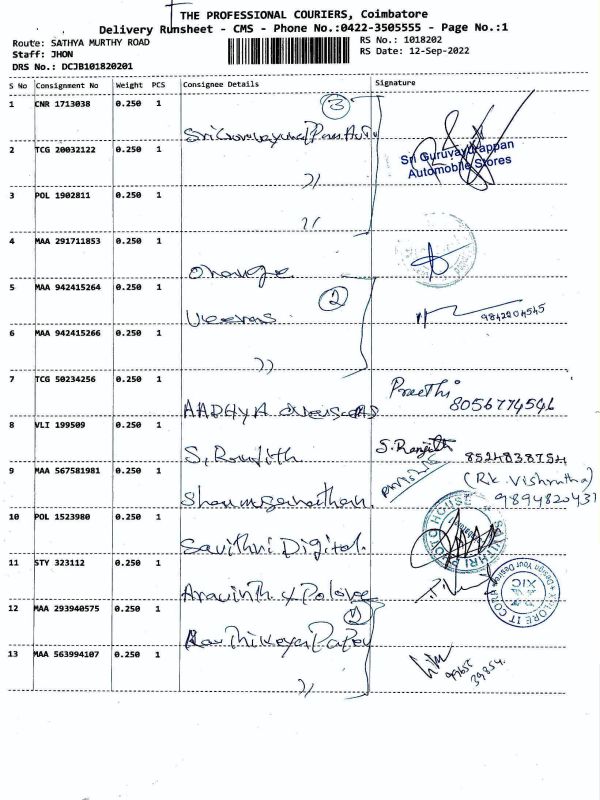 THE PROFESSIONAL COURIERS, Coimbatore
Delivery Runsheet - CMS - Phone No.:0422-3505555 - Page No.:1
Route: SATHYA MURTHY ROAD
Staff: JHON
DRS No.: DCJB101820201
RS No.: 1018202
RS Date: 12-Sep-2022
S No Consignment No Weight PCS Consignee Details Signature
1 CNR 1713038 0.250 1 3
2 TCG 20032122 0.250 1 "
Sri Guruvayurappan
Automobile Stores
3 POL 1902811 0.250 1 "
4 MAA 291711853 0.250 1
5 MAA 942415264 0.250 1 2
9842204545
6 MAA 942415266 0.250 1 "
7 TCG 50234256 0.250 1 AADHYA
Preethi
8056774546
8 VLI 199509 0.250 1 S.
S. Ranjith 8524838754
9 MAA 567581981 0.250 1
(Rk. Vishrutha)
9894820437
10 POL 1523980 0.250 1 Savithri Digital
SAVITHRI PHOTO HOUSE
11 STY 323112 0.250 1 Aravinth
XIC
Design Your Desire
12 MAA 293940575 0.250 1 2
13 MAA 563994107 0.250 1 "